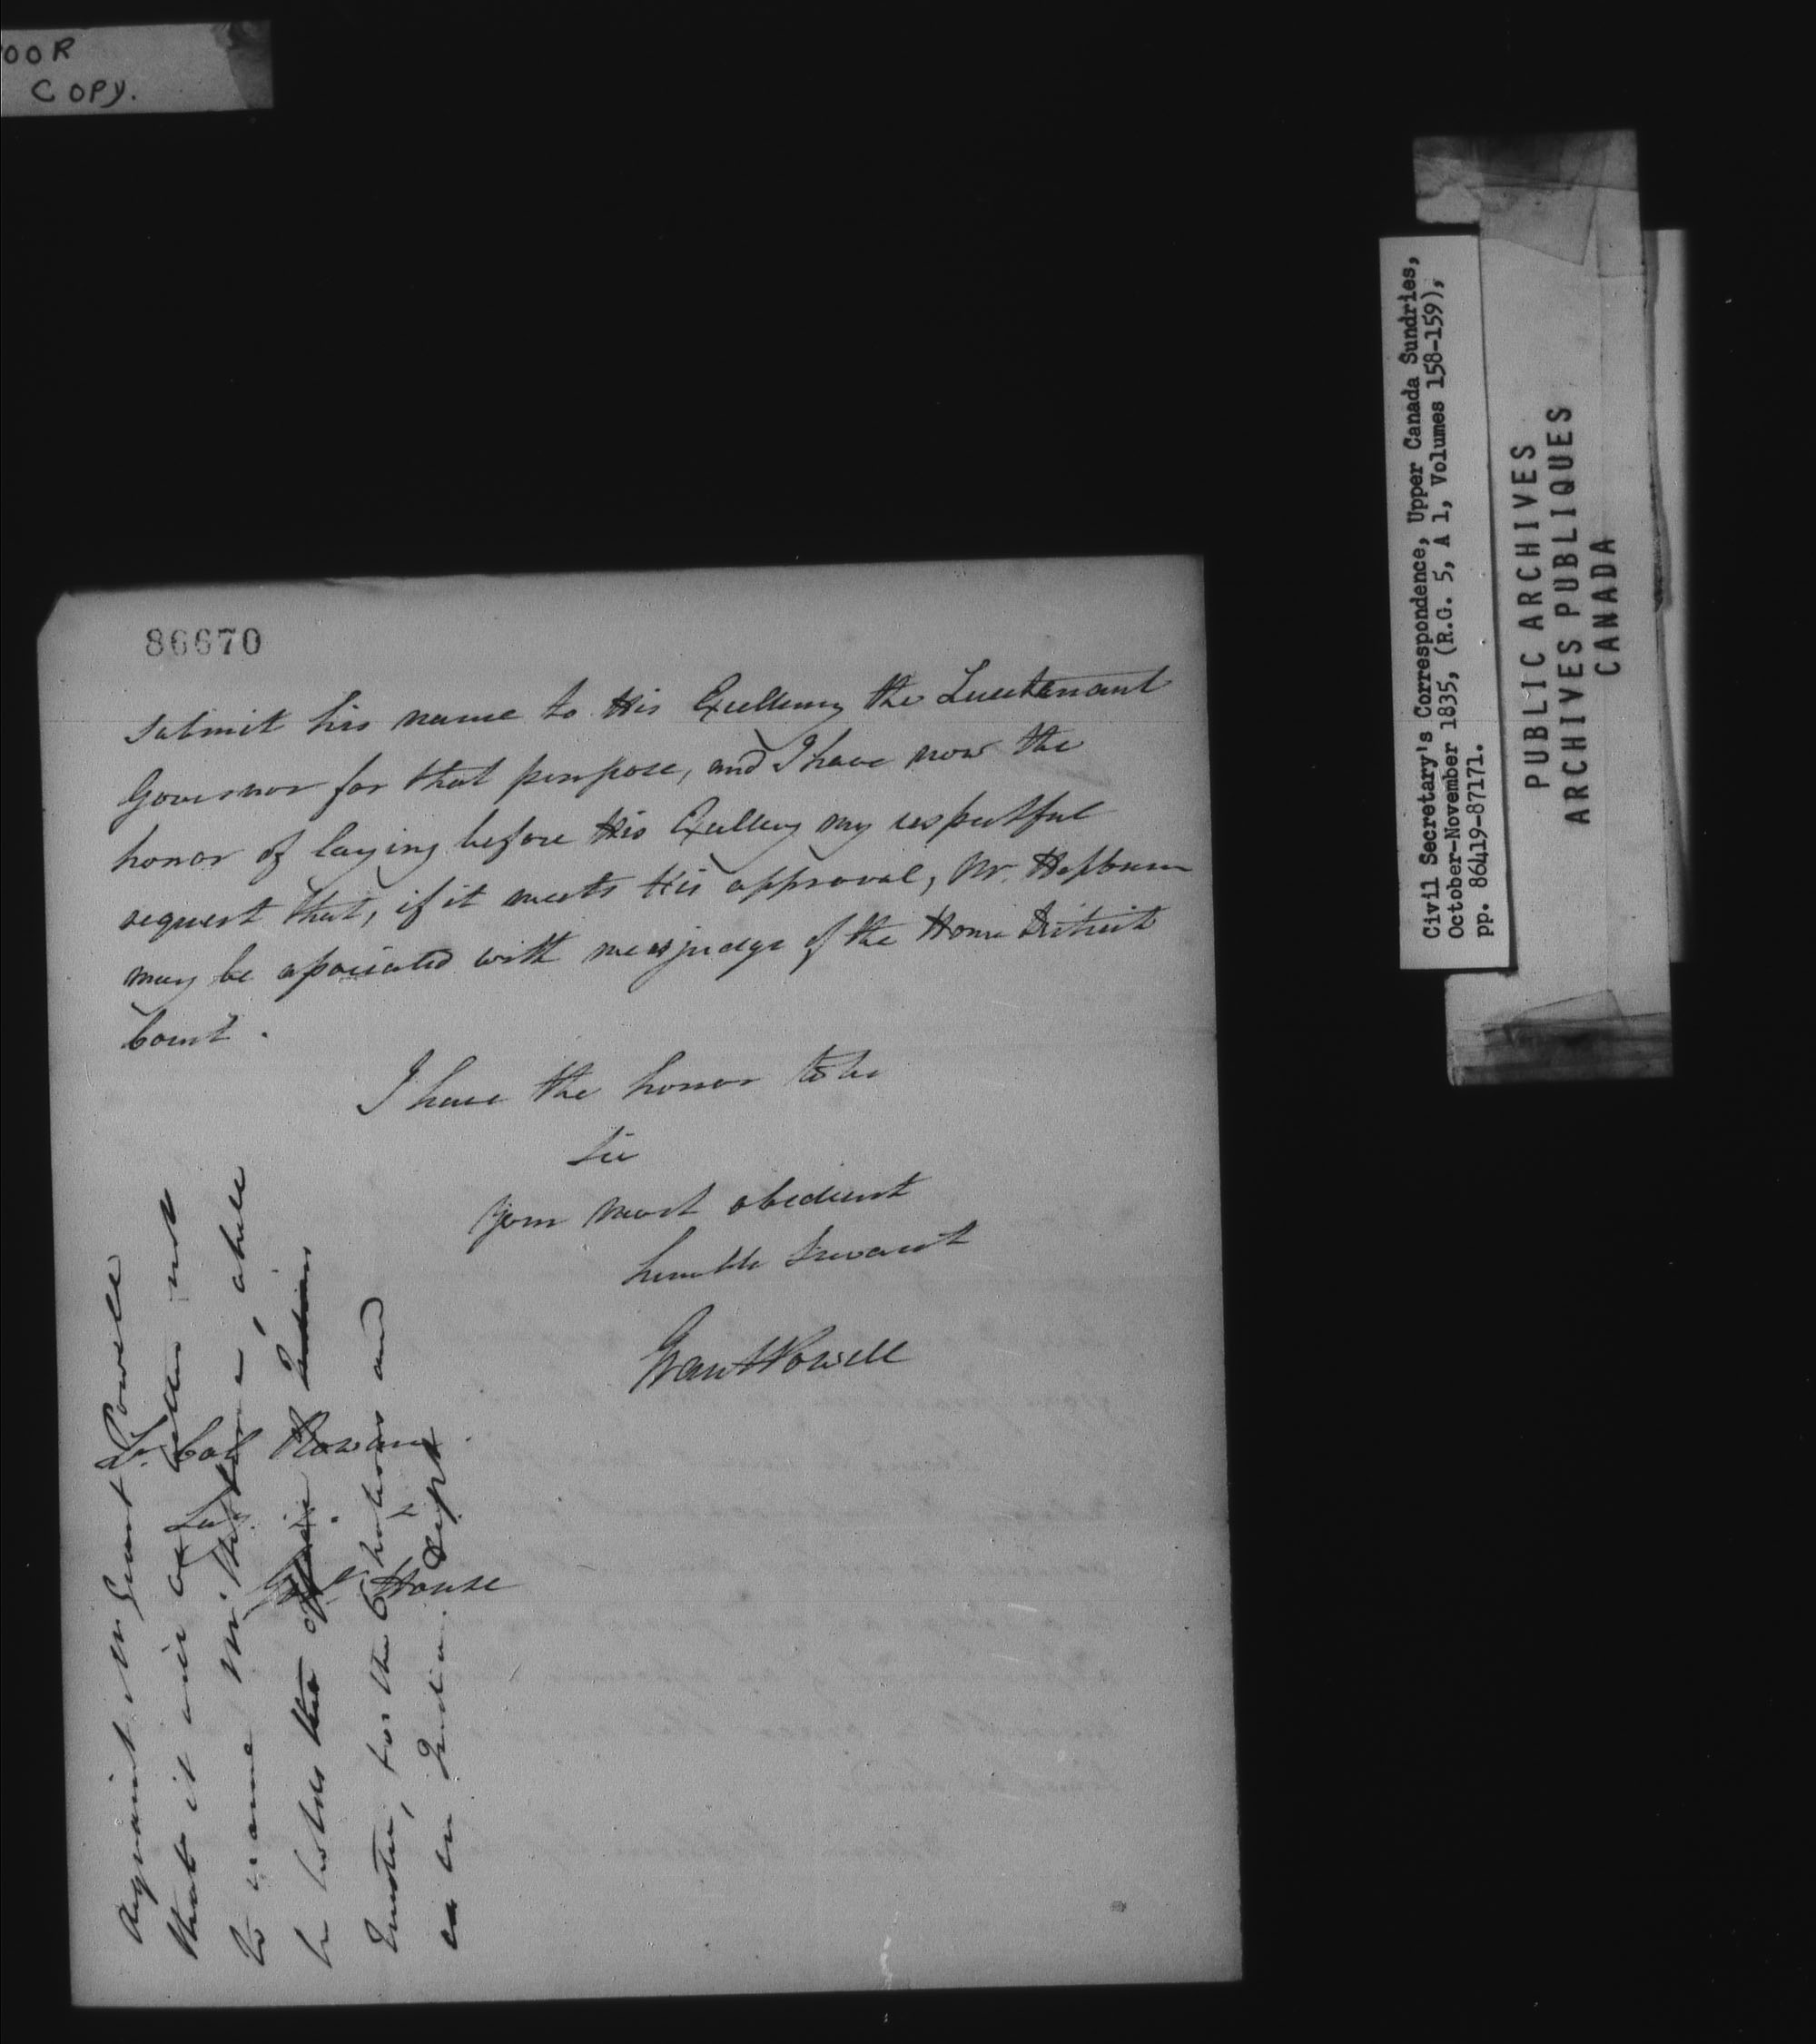 OOR
COPY.
86670
submit his name to His Excellency the Lieutenant
Governor for that purpose, and I have now the
honor of laying before His Excellency my respectful
request that, if it meets His approval, Mr. Hepburn
may be associated with me as judge of the Home District
Court.
I have the honor to be
Sir
Your most obedient
humble Servant
Grant Powell
Lt. Col Rowan
Govt House
Acquaint Mr Grant Powell
that it will be better not
to name Mr Hepburne, while
he holds the office Indian
Trustee, for the Chatham and
in Indian Dept
Civil Secretary's Correspondence, Upper Canada Sundries,
October-November 1835, (R.G. 5, A 1, Volumes 158-159),
pp. 86419-87171.
PUBLIC ARCHIVES
ARCHIVES PUBLIQUES
CANADA